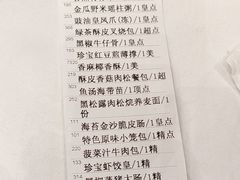 金瓜野米瑶柱粥/1皇点
豉油皇凤爪(冻)/1皇点
绿茶酥皮叉烧包/1超点
黑椒牛仔骨/1皇点
珍宝红豆煎薄撑/1美
香麻椰香酥/1美
酥皮香菇肉松餐包/1超
鱼汤海带苗/1顶点
黑松露肉松烷荞麦面/1
份
海苔金沙脆皮肠/1皇点
特色原味小笼包/1精点
菠菜汁牛肉包/1精
珍宝虾饺皇/1精